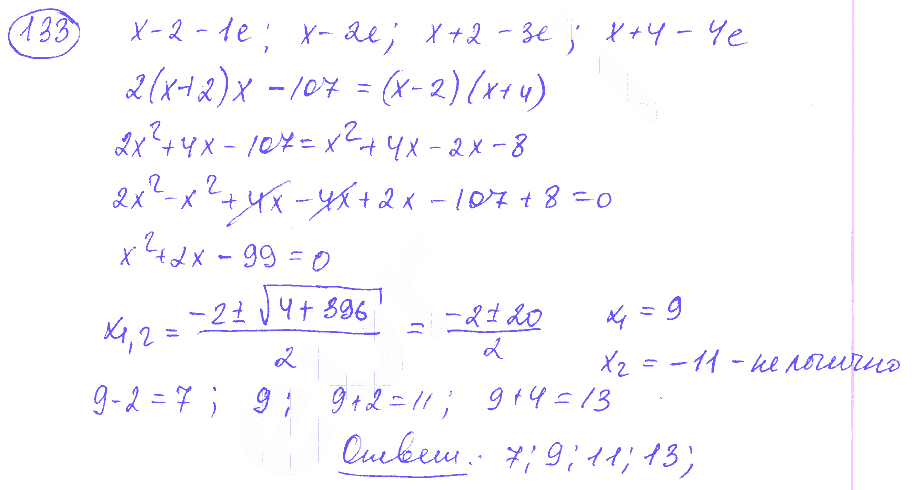 133 x-2 - 1е; x - 2е; x+2 - 3е; x+4 - 4е
2(x+2)x - 107 = (x-2)(x+4)
2x²+4x - 107 = x²+4x - 2x - 8
2x² - x² + 4x - 4x + 2x - 107 + 8 = 0
x²+2x - 99 = 0
x₁,₂ = (-2 ± √(4+396))/2 = (-2 ± 20)/2 x₁ = 9
x₂ = -11 - не логично
9-2 = 7; 9; 9+2 = 11; 9+4 = 13
Ответ: 7; 9; 11; 13;